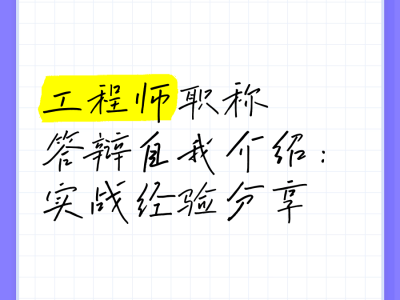 工程师职称
答辩自我介绍：
实战经验分享